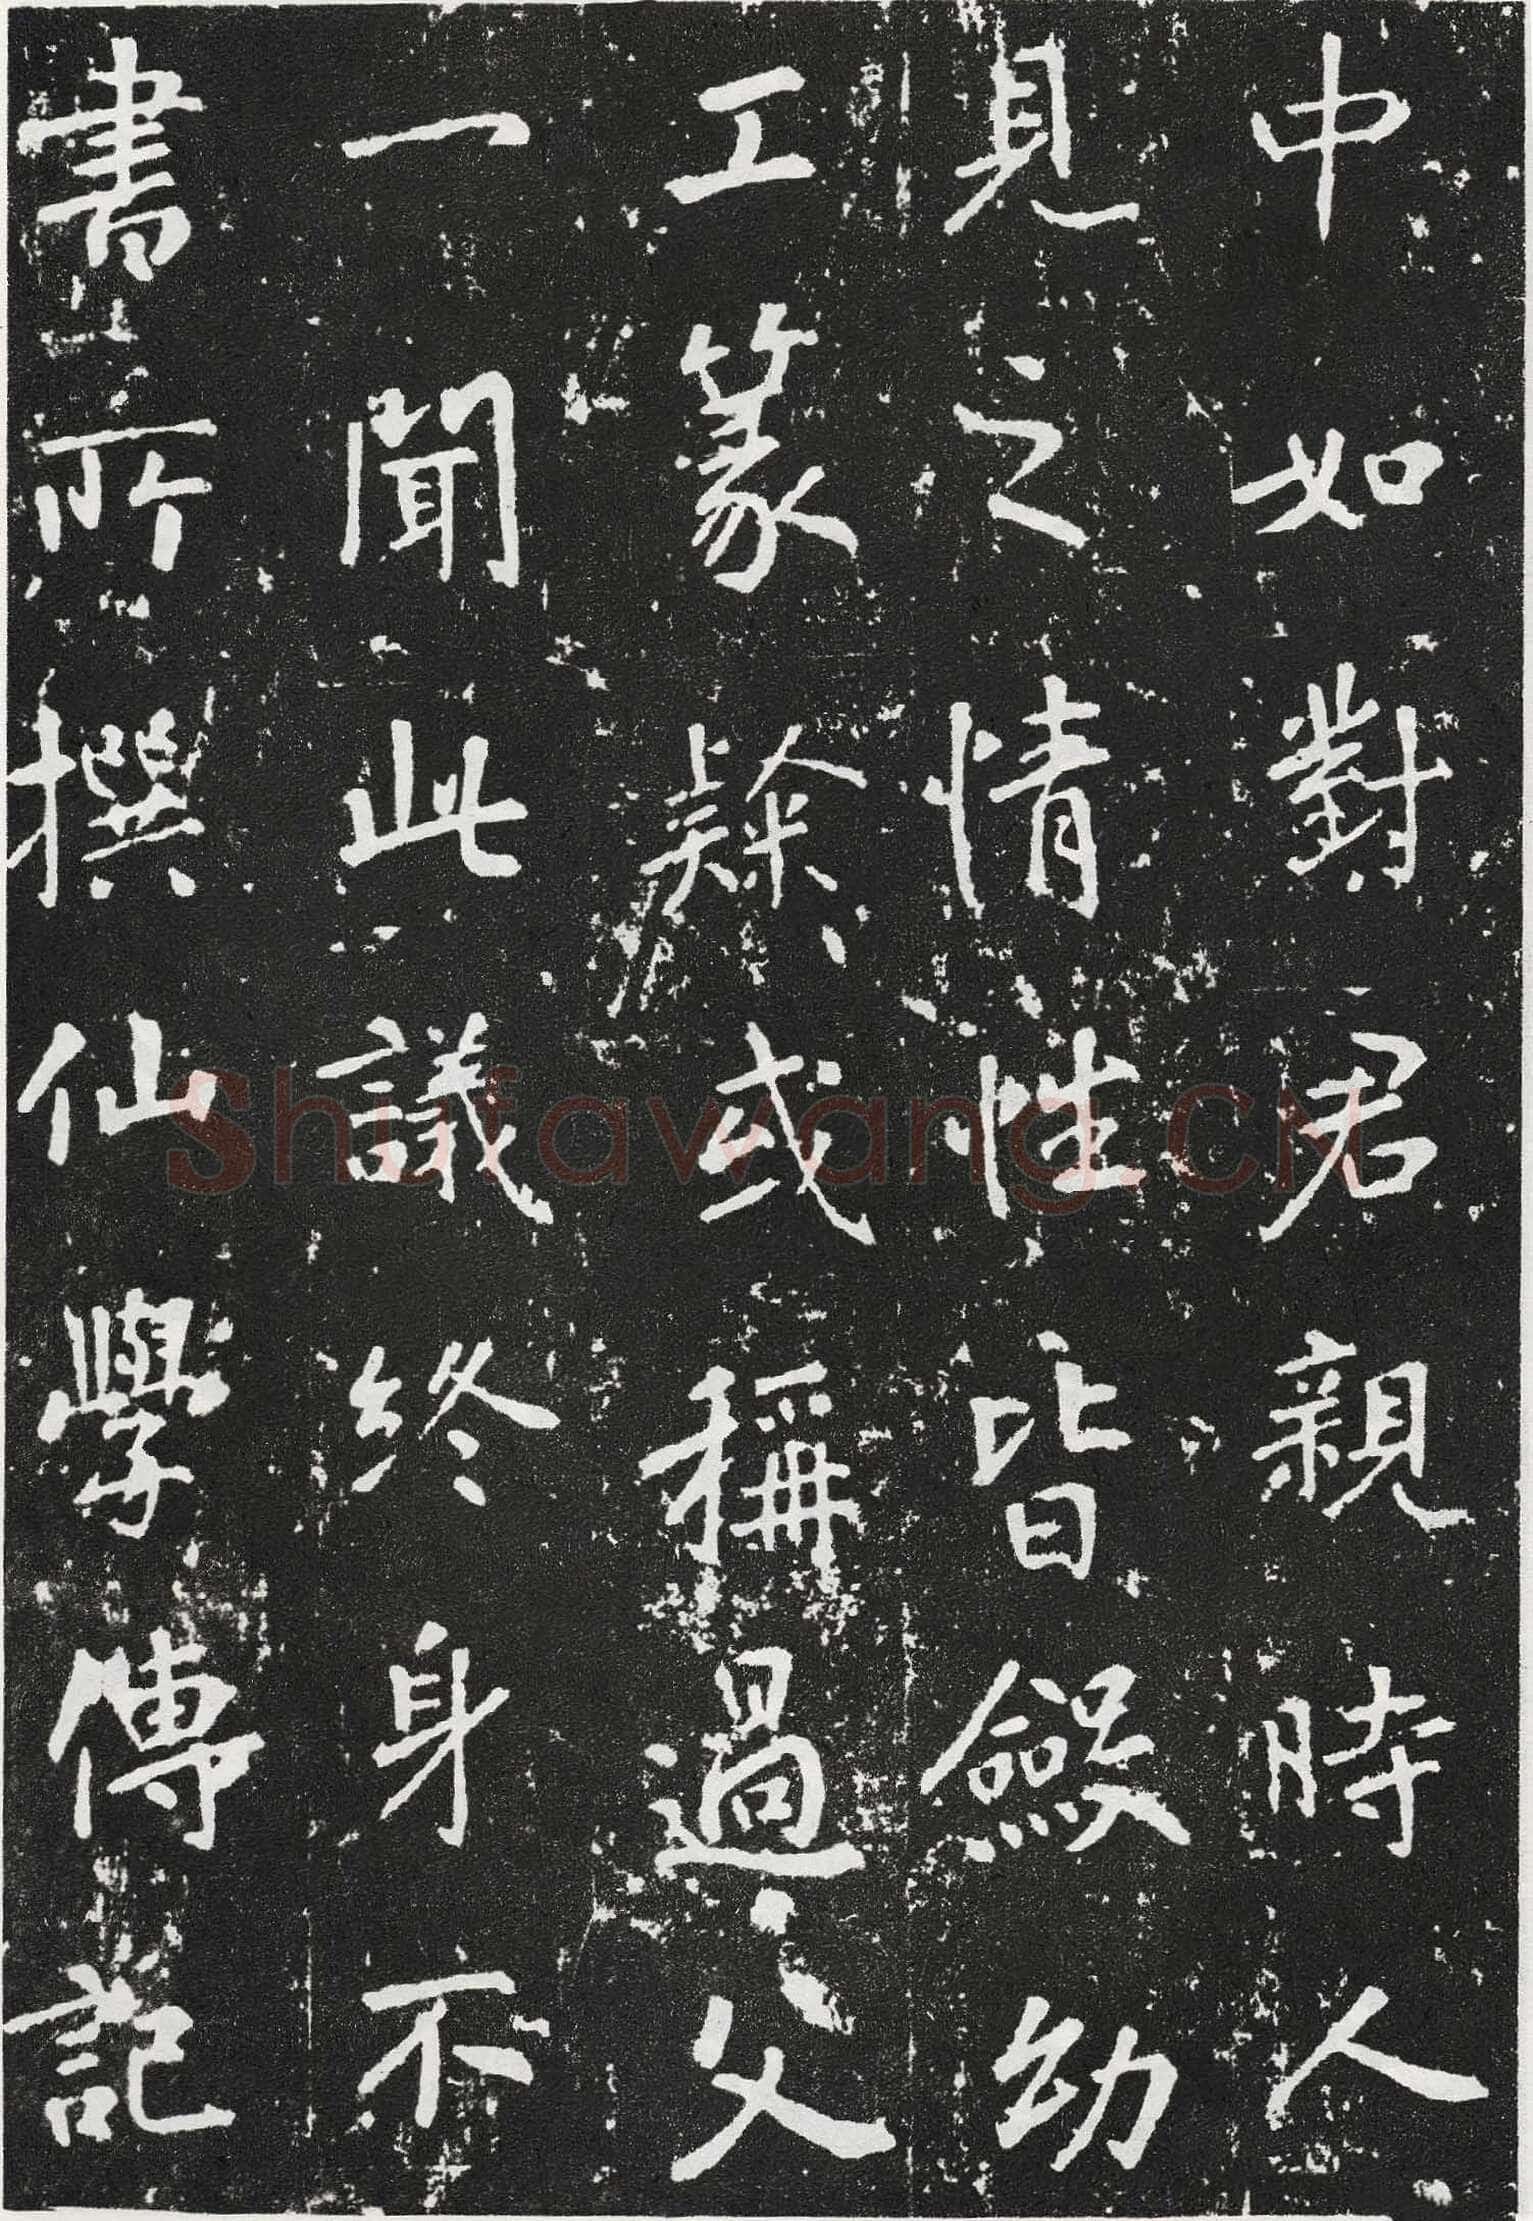 中如對君親時人
見之情性皆斂幼
工篆隸或稱過父
一聞此議終身不
書所撰仙學傳記
Shufawang.CN